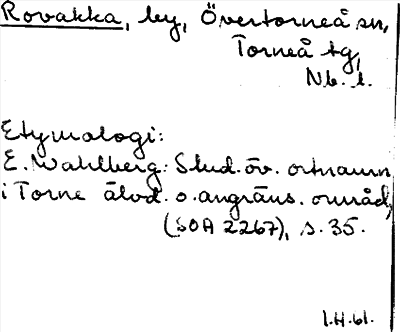 Rovakka, by, Övertorneå sn,
Torneå tg,
Nb. l.
Etymologi:
E. Wahlberg: Stud. öv. ortnamn
i Torne älvd. o. angräns. områd,
(SOA 2267), s. 35.
1.H.61.